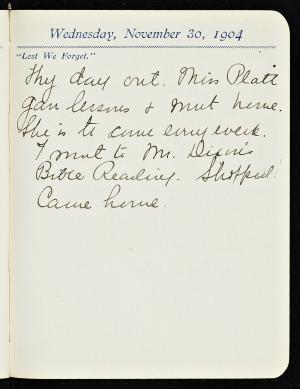 Wednesday, November 30, 1904
"Lest We Forget."
My day out. Miss Platt
gave lessons & went home.
She is to come every week.
I went to Mr. Dixon's
Bible Reading. Shopped.
Came home.